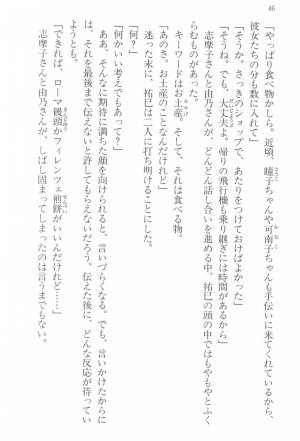 46
「やっぱり食べ物かしら。近頃、瞳子ちゃんや可南子ちゃんも手伝いに来てくれているから、
彼女たちの分も数に入れて」
「そうか。さっきのショップで、あたりをつけておけばよかった」
「そうね。でも、大丈夫よ。帰りの飛行機も乗り継ぎには時間があるから」
志摩子さんと由乃さんが、どんどん話し合いを進める中、祐巳の頭の中ではもやもやとふく
らむものがあった。
キーワードはお土産。そして、それは食べる物。
「あのさ。お土産のことなんだけれど」
迷った末に、祐巳は二人に打ち明けることにした。
「何かいい考えでもあって？」
ああ、そんなに期待に満ちた顔を向けられると、言いづらくなる。でも、言いかけたからに
は、それを最後まで伝えないと許してもらえないだろう。伝えた後に、どんな反応が待ってい
ようとも。
「できれば、ローマ饅頭かフィレンツェ煎餅がいいんだけれど……」
志摩子さんと由乃さんが、しばし固まってしまったのは言うまでもない。